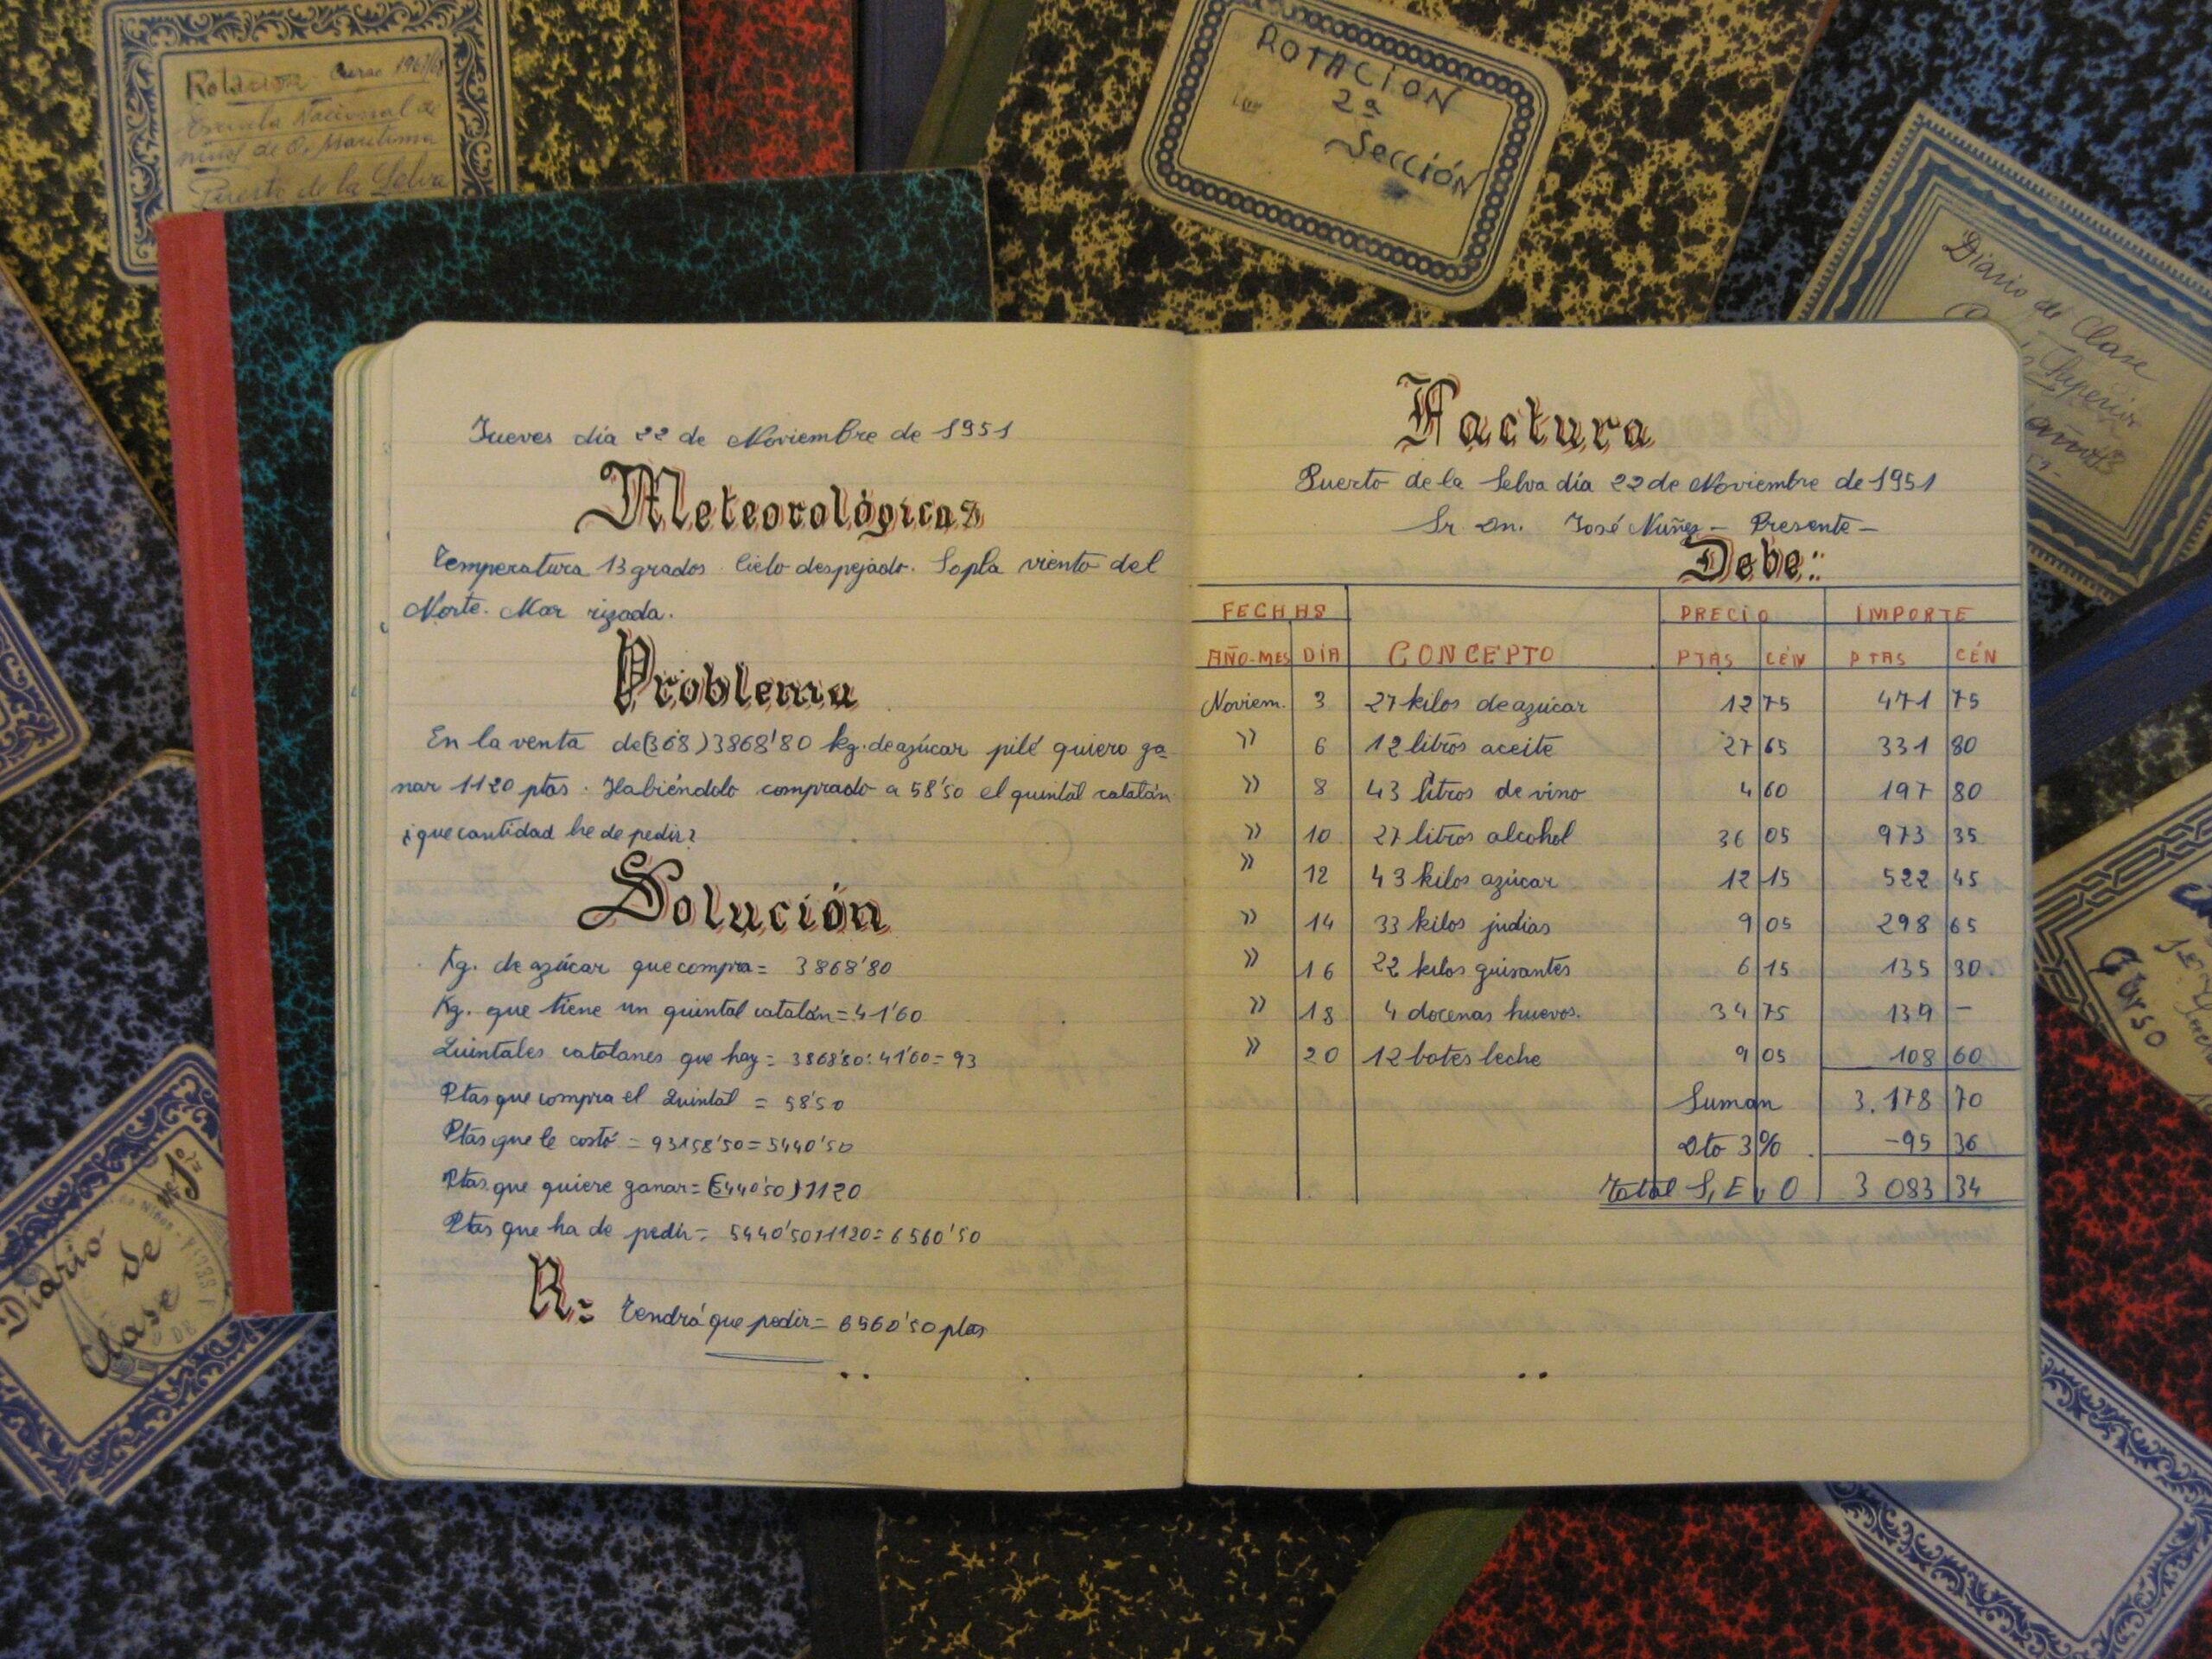 Rotación - Curso 1967/68
Escuela Nacional de
niños de O. Marítima
Puerto de la Selva
ROTACIÓN
2ª
Sección
Diario de Clase
Superior
Jueves día 22 de Noviembre de 1951
Meteorológicas
Temperatura 13 grados. Cielo despejado. Sopla viento del
Norte. Mar rizada.
Problema
En la venta de (368) 3868'80 kg. de azúcar pilé quiero ga=
nar 1120 ptas. Habiéndolo comprado a 58'50 el quintal catalán
¿que cantidad he de pedir?
Solución
Kg. de azúcar que compra = 3868'80
Kg. que tiene un quintal catalán = 41'60
Quintales catalanes que hay = 3868'80 : 41'60 = 93
Ptas que compra el Quintal = 58'50
Ptas que le costó = 93x58'50 = 5440'50
Ptas. que quiere ganar = (5440'50) 1120
Ptas que ha de pedir = 5440'50+1120 = 6560'50
R= Tendrá que pedir = 6560'50 ptas
Factura
Puerto de la Selva día 22 de Noviembre de 1951
Sr. Dn. José Nuñez - Presente -
Debe:
FECHAS PRECIO IMPORTE
AÑO-MES DÍA CONCEPTO PTAS CÉN PTAS CÉN
Noviem. 3 27 kilos de azúcar 12 75 471 75
" 6 12 litros aceite 27 65 331 80
" 8 43 litros de vino 4 60 197 80
" 10 27 litros alcohol 36 05 973 35
" 12 43 kilos azúcar 12 15 522 45
" 14 33 kilos judias 9 05 298 65
" 16 22 kilos guisantes 6 15 135 30.
" 18 4 docenas huevos. 34 75 139 -
" 20 12 botes leche 9 05 108 60
Suman 3.178 70
Dto 3% -95 36
Total S, E, u, O 3 083 34
Diario
de
Clase
nº 1º
Curso